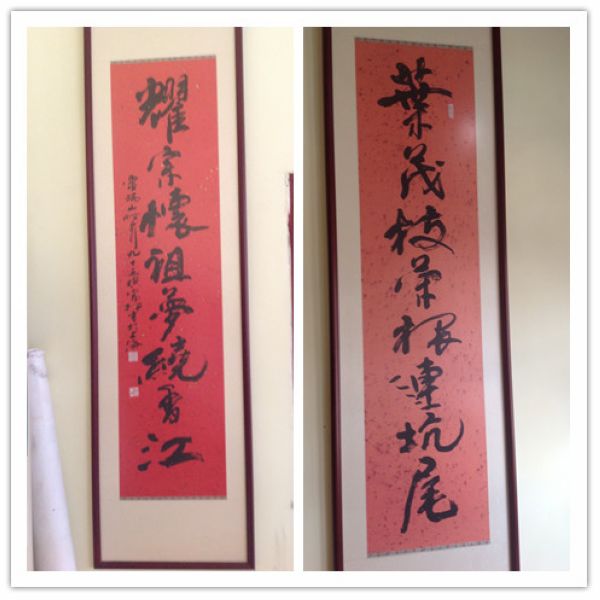 葉茂枝榮根連坑尾
耀宗懷祖夢繞香江